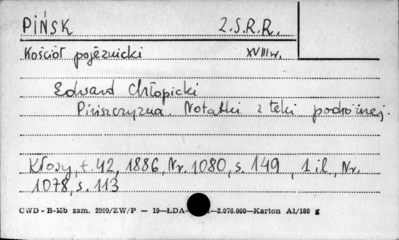 PIŃSK Z.S.R.R.
Kościół pojezuicki XVIII w.
Edward Chłopicki
Pińszczyzna. Notatki z teki podróżnej.
Kłosy, t. 42, 1886, Nr. 1080, s. 149, 1 il., Nr.
1078, s. 113
CWD - B-55b zam. 2969/ZW/P — 19—ŁDA- —2.076.000—Karton A1/180 g